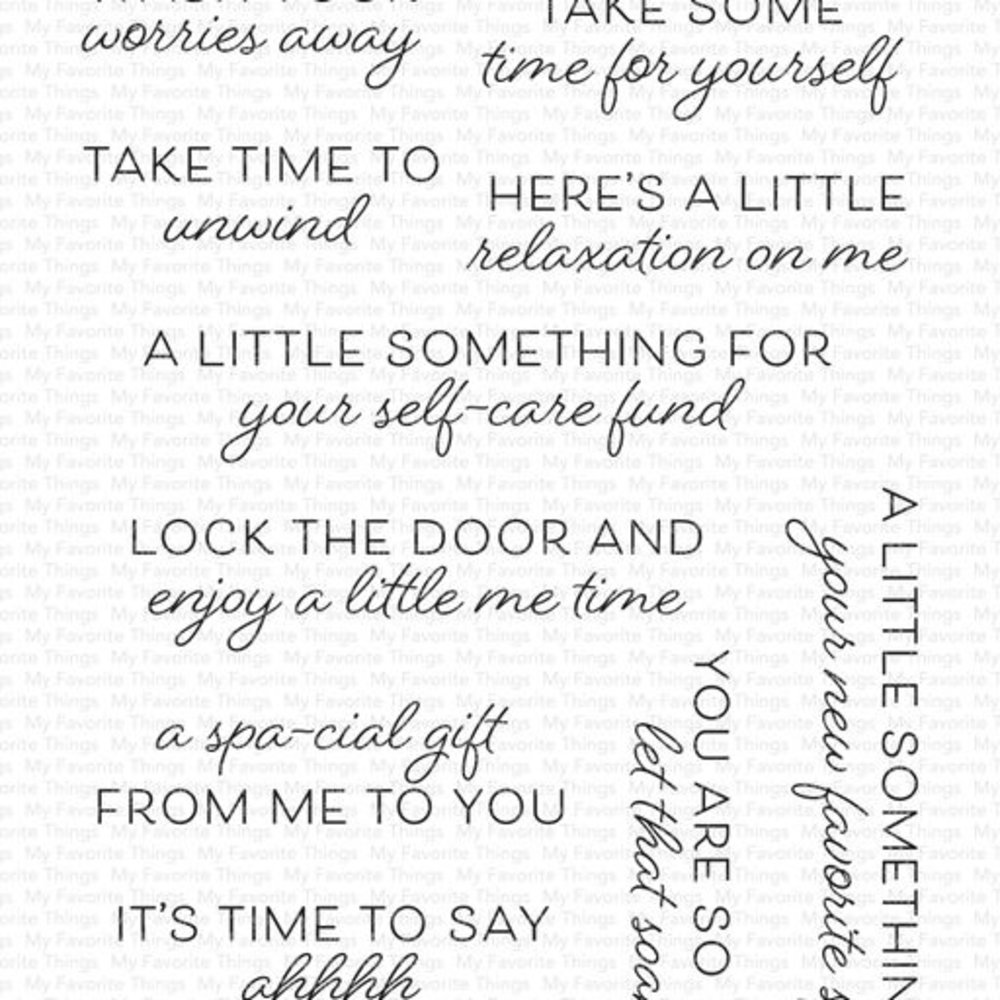 worries away
TAKE SOME
time for yourself
TAKE TIME TO
unwind
HERE'S A LITTLE
relaxation on me
A LITTLE SOMETHING FOR
your self-care fund
LOCK THE DOOR AND
enjoy a little me time
a spa-cial gift
FROM ME TO YOU
IT'S TIME TO SAY
ahhhh
YOU ARE SO
let that
A LITTLE
your new favorite
My Favorite Things